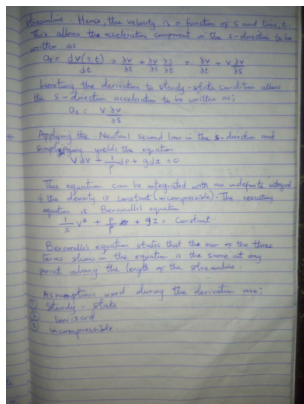 streamline. Hence, the velocity is a function of s and time, t.
This allows the acceleration component in the s-direction to be
written as
as = dv(s,t)/dt = ∂v/∂t + ∂v/∂s ∂s/∂t = ∂v/∂t + v ∂v/∂s
the derivation to steady-state condition allows
the s-direction acceleration to be written as;
as = v ∂v/∂s
Applying the Newton's second law in the s-direction and
simplifying yields the equation
Vdv + 1/ρ dp + gdz = 0
This equation can be integrated with an indefinite integral
the density is constant (incompressible). The resulting
equation is Bernoulli's equation
1/2 v² + p/ρ + gz = Constant
Bernoulli's equation states that the sum of the three
terms shown in the equation is the same at any
point along the length of the streamline.
Assumptions used during the derivation are:
Steady-state
Inviscid
Incompressible